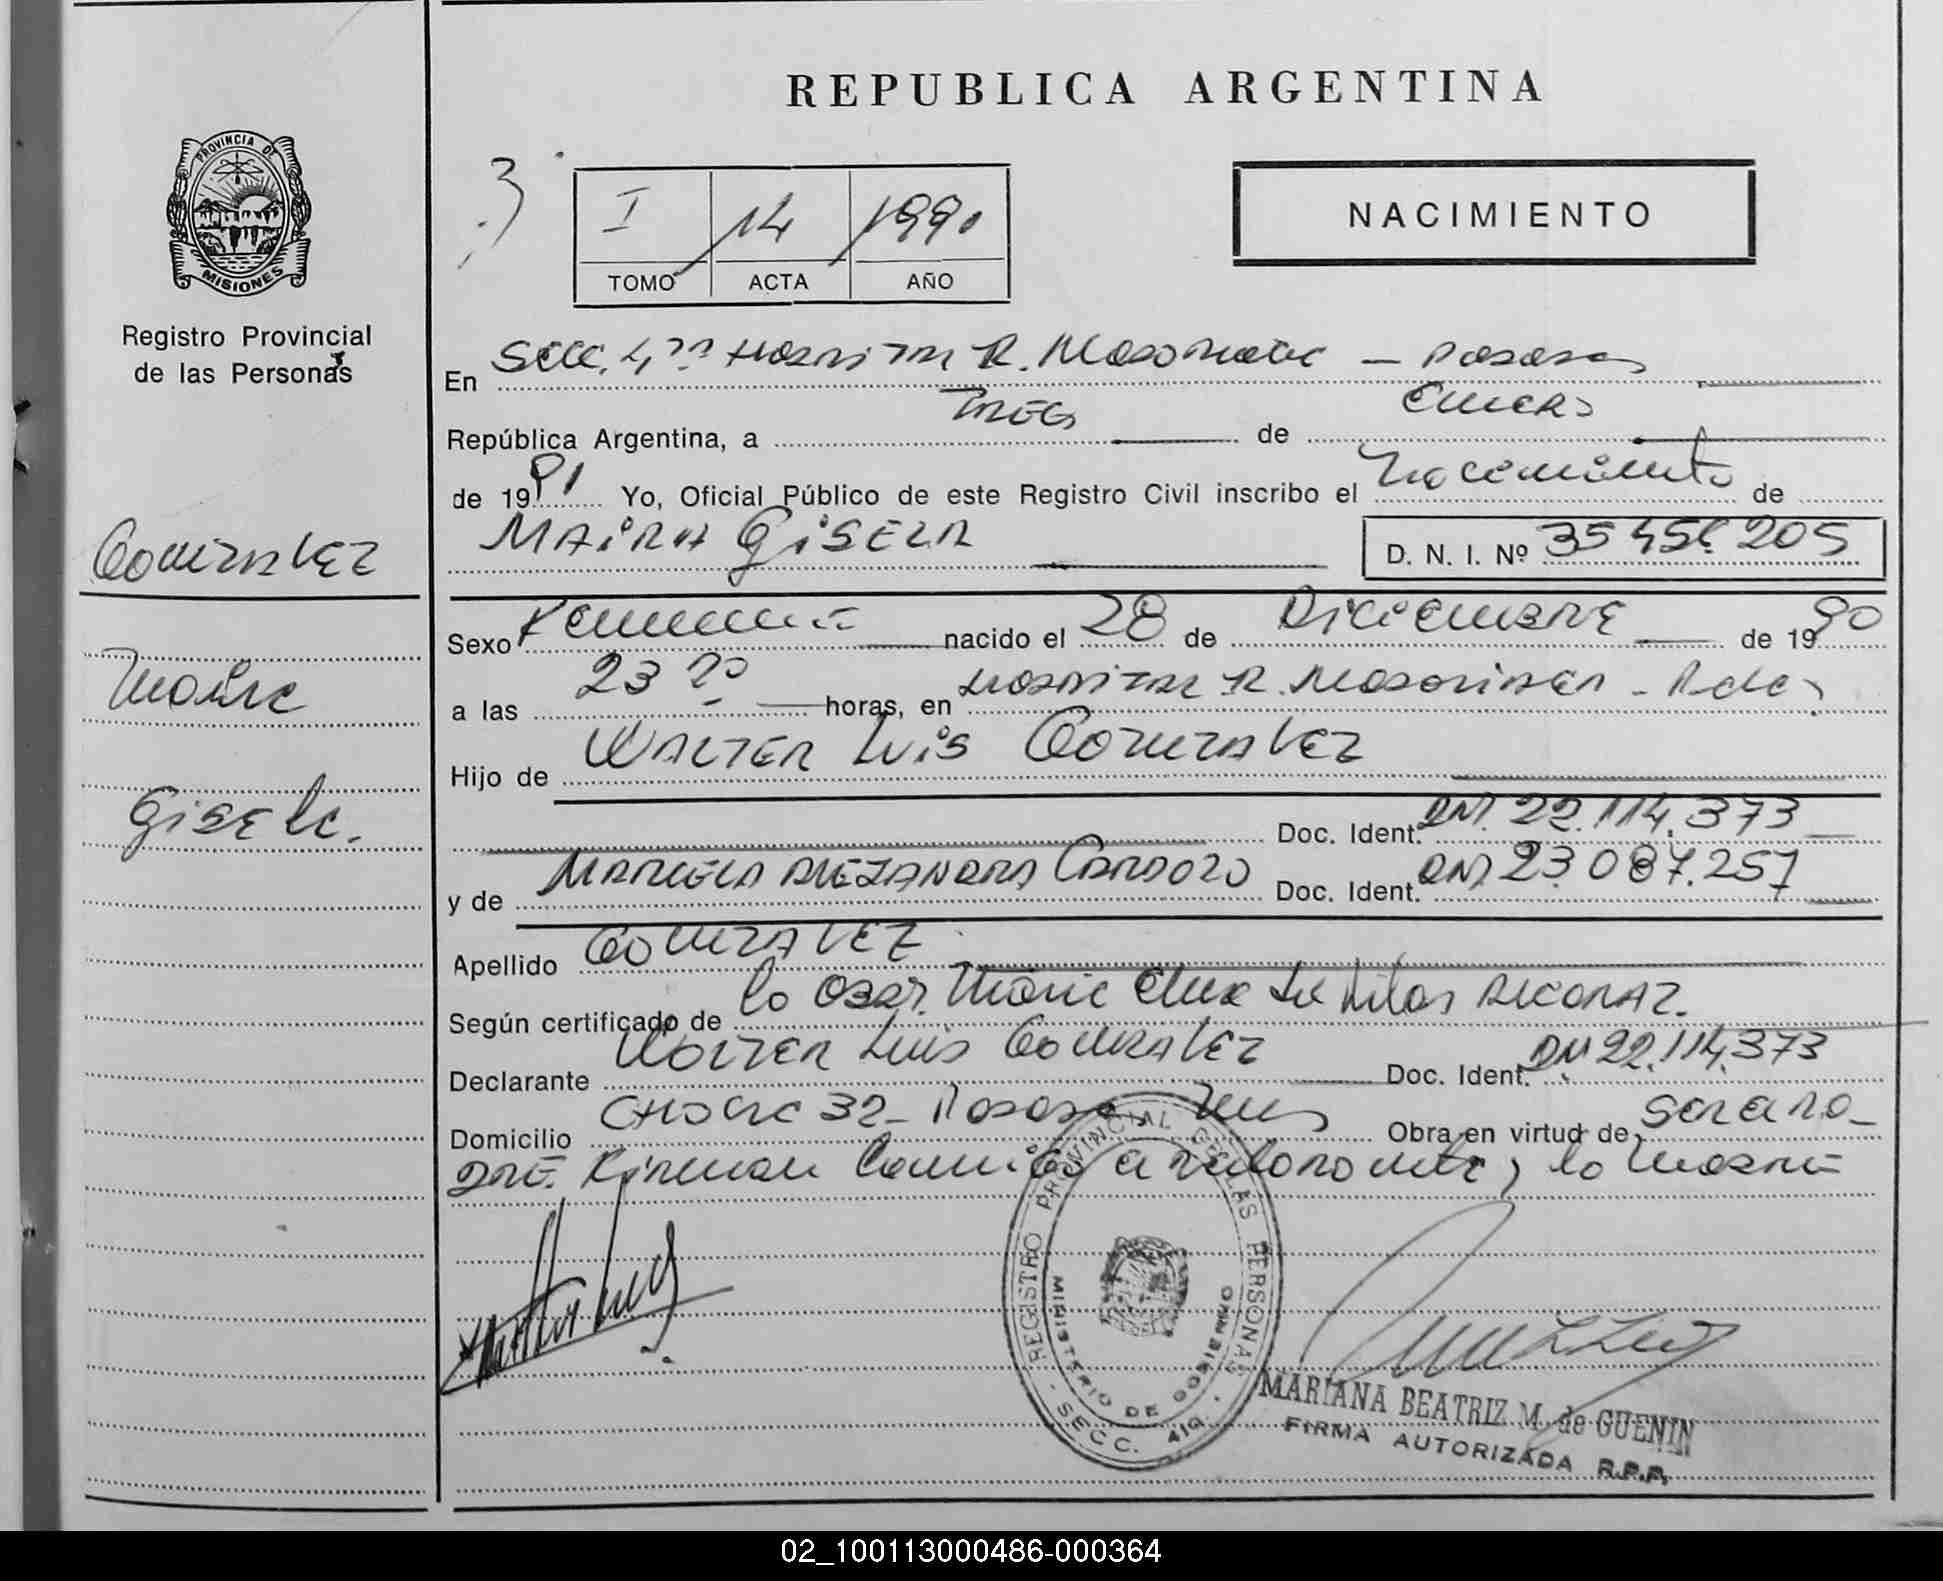 REPUBLICA ARGENTINA
PROVINCIA DE
MISIONES
Registro Provincial
de las Personas
3
I 14 1990
TOMO ACTA AÑO
NACIMIENTO
En Secc. 4ta Hospital R. Madariaga - Posadas
República Argentina, a Tres de Enero
de 1991 Yo, Oficial Público de este Registro Civil inscribo el Nacimiento de
MAIRA GISELA
D. N. I. Nº 35 456 205
Gonzalez
Maira
Gisela.
Sexo Femenino nacido el 28 de Diciembre de 1990
a las 23 horas, en Hospital R. Madariaga - Pdas
Hijo de WALTER LUIS GONZALEZ
Doc. Ident. DNI. 22.114.373
y de MARCELA ALEJANDRA CARDOZO Doc. Ident. DNI 23.087.257
Apellido GONZALEZ
Según certificado de la Obst. Maria
Declarante Walter Luis Gonzalez Doc. Ident. DNI 22.114.373
Domicilio Chacra 32 - Posadas Mnes Obra en virtud de
REGISTRO PROVINCIAL DE LAS PERSONAS
MINISTERIO DE GOBIERNO
SECC. 4ta
MARIANA BEATRIZ M. de GUENIN
FIRMA AUTORIZADA R.P.P.
02_100113000486-000364